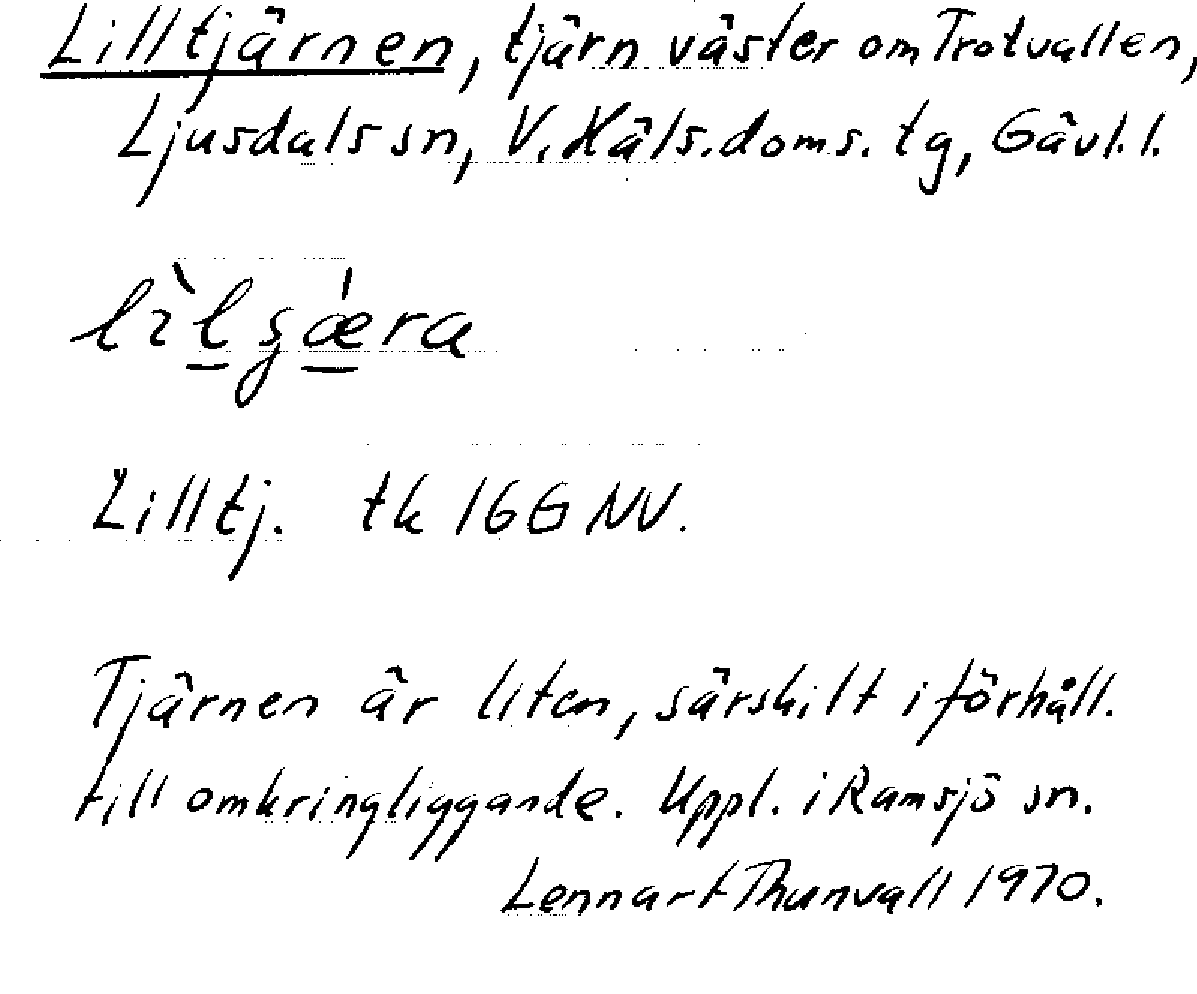 Lilltjärnen, tjärn väster om Trotvallen,
Ljusdals sn, V. Häls. doms. tg, Gävl. l.
Lilltj. tk 16G NV.
Tjärnen är liten, särskilt i förhåll.
till omkringliggande. Uppl. i Ramsjö sn.
Lennart Thunvall 1970.